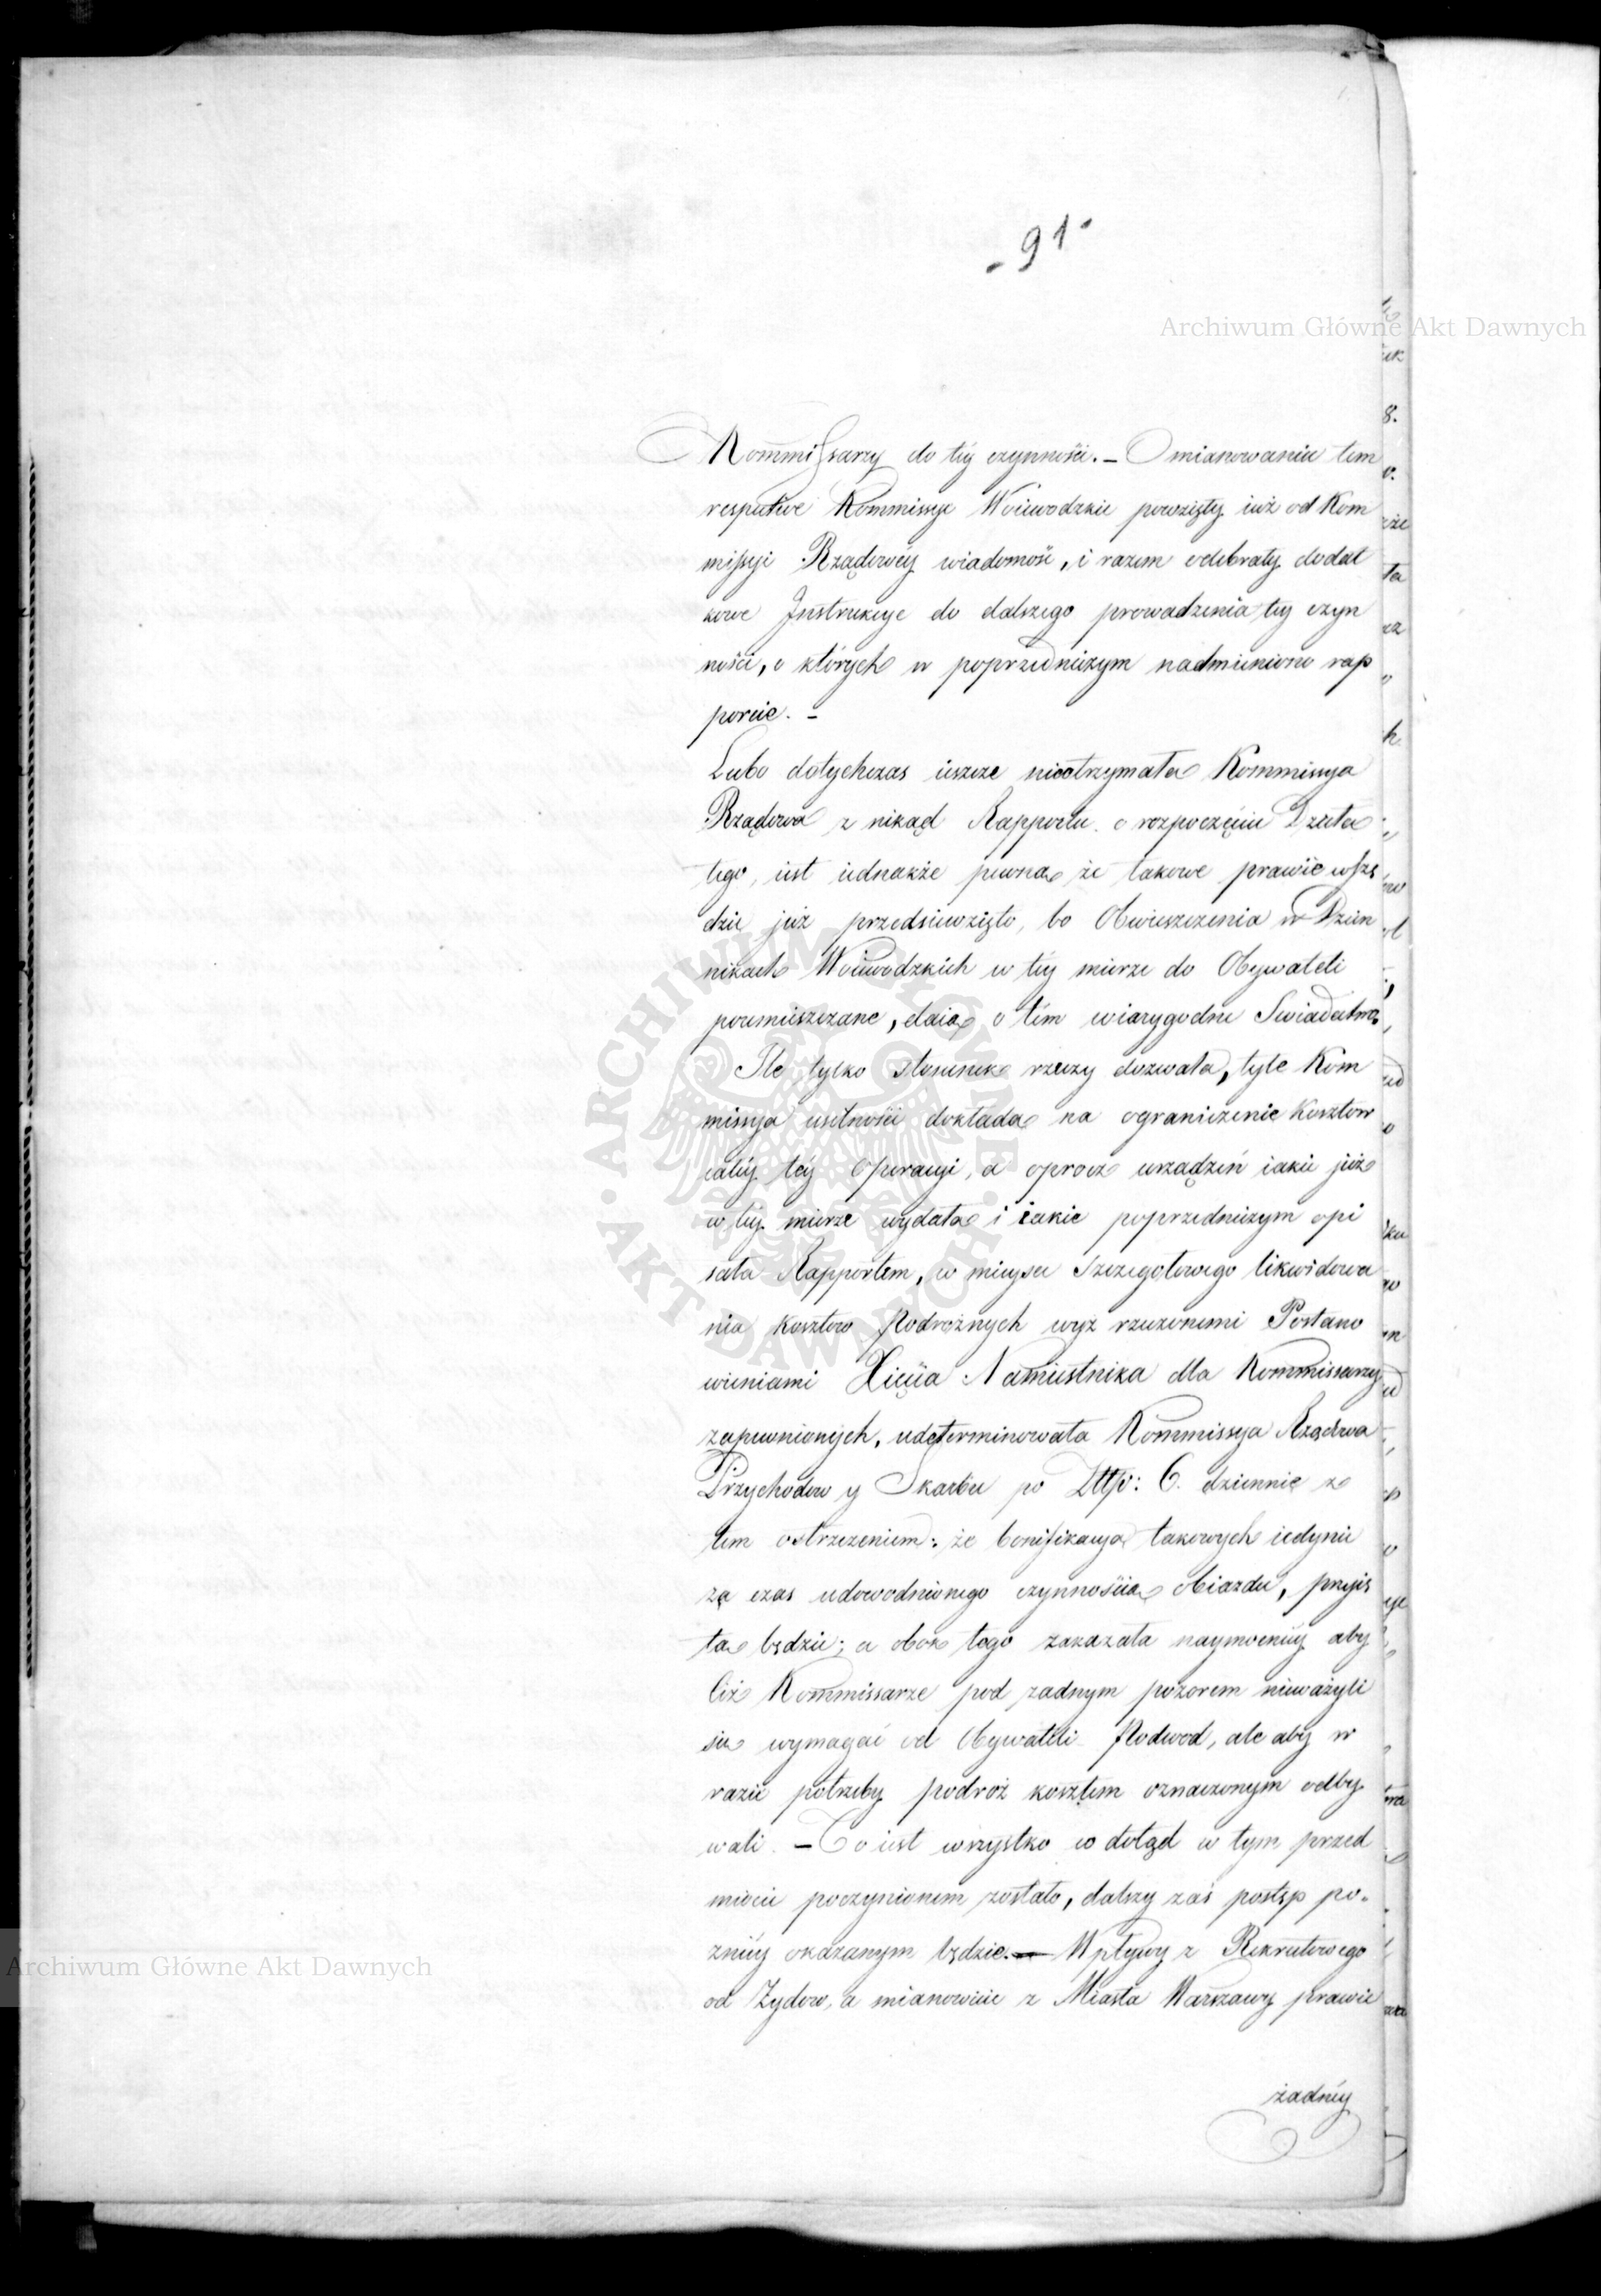 - 91 -
Archiwum Główne Akt Dawnych
Kommissarzy do téy czynności. – O mianowaniu tem
respective Kommissye Woiewodzkie powzięły iuż od Kom
missyi Rządowéy wiadomość, i razem odebrały dodat
kowe Instrukcye do dalszego prowadzenia téy czyn
ności, o których w poprzedniczym nadmieniono rap
porcie. –
Lubo dotychczas ieszcze nieotrzymała Kommissya
Rządowa z nikąd Rapportu o rozpoczęciu Dzieła
tego, iest iednakże pewna że takowe prawie wszę
dzie już przedsięwzięto, bo Obwieszczenia w Dzien
nikach Woiewodzkich w téy mierze do Obywateli
poumieszczane, daią o tém wiarygodne Swiadectwo,
Ile tylko stosunek rzeczy dozwala, tyle Kom
missya usilności dokłada na ograniczenie Kosztow
całéy téy Operacyi, a oprocz urządzeń iakie już
w téy mierze wydała i iakie poprzedniczym opi
sała Rapportem, w mieysce Szczegołowego likwidowa
nia kosztow Podrożnych wyż rzeczonemi Postano
wieniami Xięcia Namiestnika dla Kommissarzy
zapewnionych, udeterminowała Kommissya Rządowa
Przychodow y Skarbu po Zttp: 6. dziennie z
tem ostrzeżeniem: że bonifikacya takowych iedynie
za czas udowodnionego czynnościa obiazdu, przyię
ta będzie; a obok tego zakazała naymocniéy aby
Ciż Kommissarze pod żadnym pozorem nieważyli
się wymagać od Obywateli Podwod, ale aby w
razie potrzeby podroż kosztem oznaczonym odby
wali. – To iest wszystko co dotąd w tym przed
miocie poczynionem zostało, dalszy zaś postęp po-
zniéy okazanym będzie. – Wpływy z Rekrutowego
od Żydow, a mianowicie z Miasta Warszawy prawie
żadnéy
Archiwum Główne Akt Dawnych
ARCHIWUM GŁÓWNE • AKT DAWNYCH •